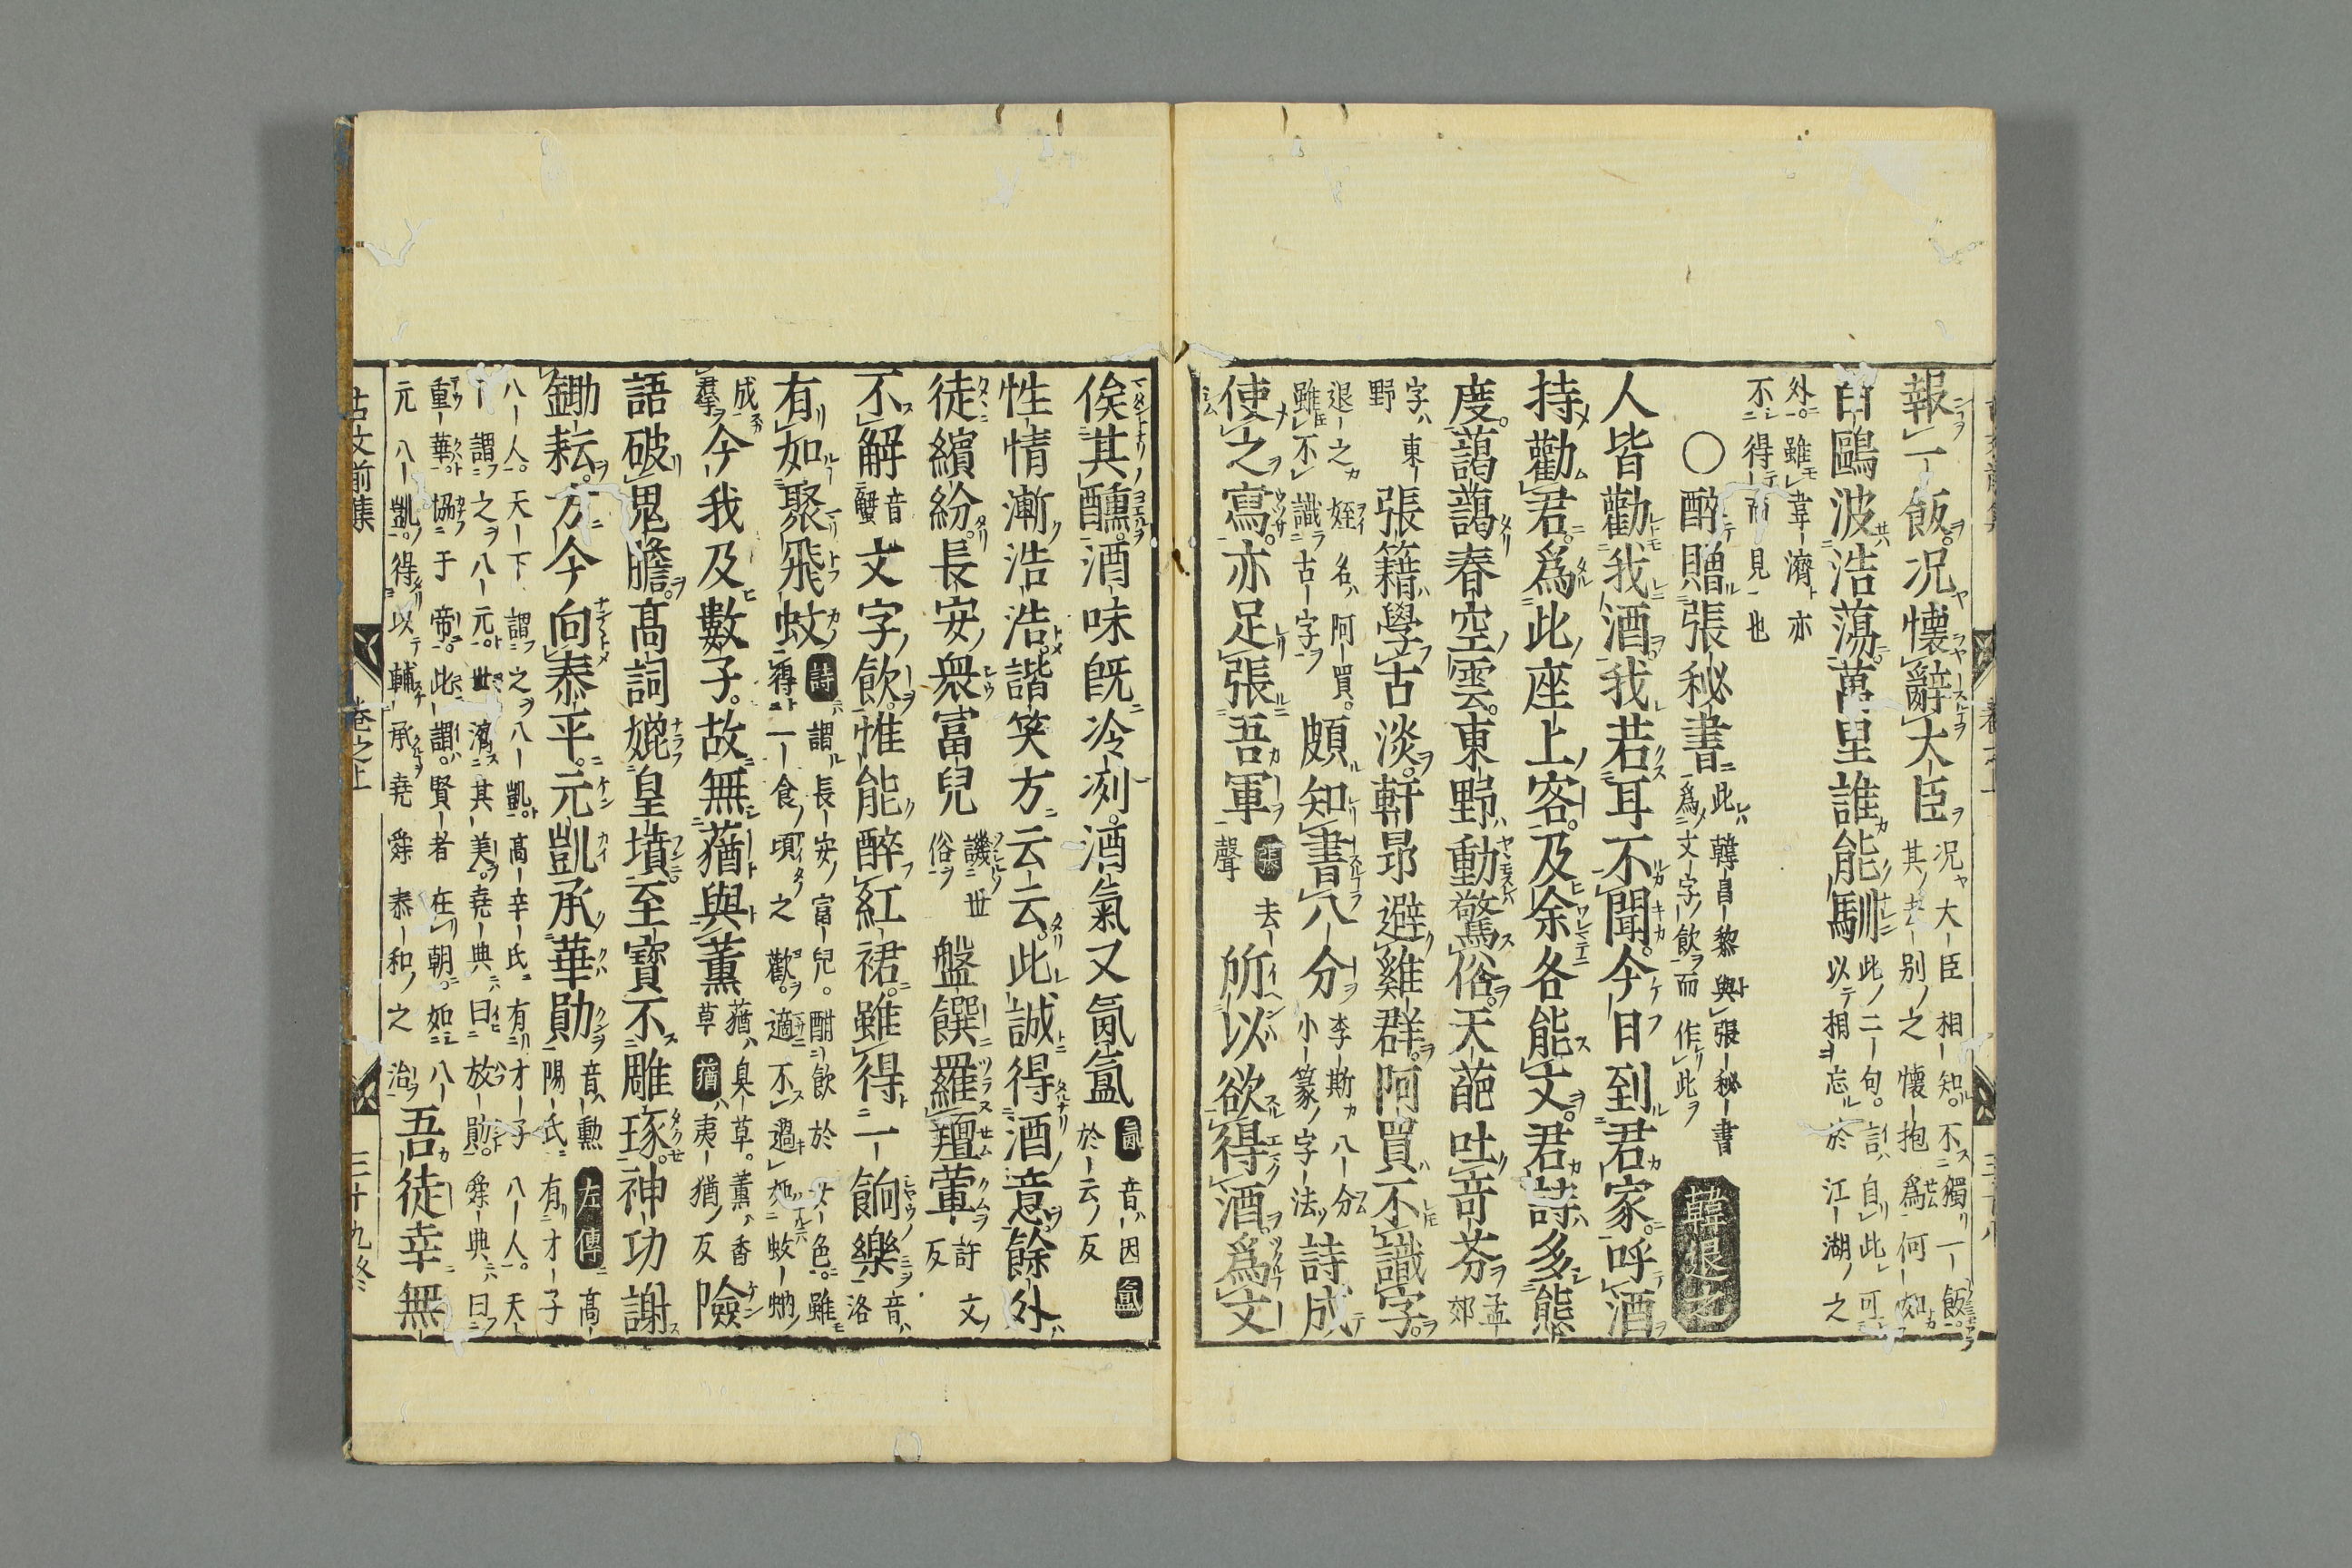 報一飯況懷辭大臣 況大臣相知不獨一飯其去別之懷抱爲何如
白鷗波浩蕩萬里誰能馴 此二句言自此可以相忘於江湖之
外雖韋濟亦不得而見也
○醉贈張秘書 此韓昌黎與張秘書爲文字飲而作此 韓退之
人皆勸我酒我若耳不聞今日到君家呼酒
持勸君爲此座上客及余各能文君詩多態
度藹藹春空雲東野動驚俗天葩吐奇芬 孟郊
字東野 張籍學古淡軒昂避雞群阿買不識字
退之姪名阿買雖不識古字 頗知書八分 李斯八分小篆字法 詩成
使之寫亦足張吾軍 張去聲 所以欲得酒爲文
俟其醺酒味旣冷冽酒氣又氤氳 氤音因氳於云反
性情漸浩浩諧笑方云云此誠得酒意餘外
徒繽紛長安衆富兒 譏世俗 盤饌羅羶葷 許文反
不解 音蟹 文字飮惟能醉紅裙雖得一餉樂 音洛
有如聚飛蚊 詩謂長安富兒酣飲於女色雖得一食頃之歡適不過如蚊蚋
成羣 今我及數子故無蕕與薰 蕕臭草薰香草蕕夷猶反 險
語破鬼膽高詞媲皇墳至寶不雕琢神功謝
鋤耘方今向泰平元凱承華勛 音勳 左傳高陽氏有才子
八人天下謂之八凱高辛氏有才子八人天下謂之八元世濟其美堯典曰放勛舜典曰
重華協于帝此謂賢者在朝如八元八凱得以輔承堯舜泰和之治 吾徒幸無
古文前集 卷之上 三十九終